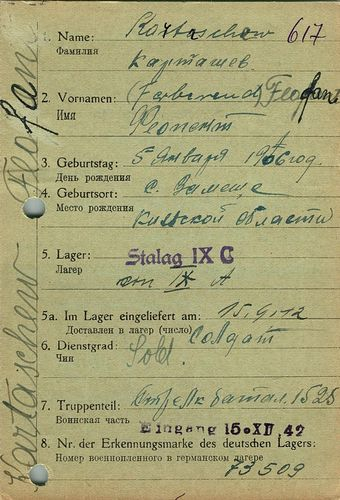 617
1. Name: Kartaschew
Фамилия Карташев
2. Vornamen: Feofan
Имя
3. Geburtstag: 5 Января 1906 год
День рождения
4. Geburtsort: с.
Место рождения
области
5. Lager: Stalag IX C
Лагерь
IX A
5a. Im Lager eingeliefert am: 15.9.42
Доставлен в лагерь (число)
6. Dienstgrad: Солдат
Чин Sold.
7. Truppenteil: батал. 1525
Воинская часть Eingang 15. XII 42
8. Nr. der Erkennungsmarke des deutschen Lagers:
Номер военнопленного в германском лагере
73509
Kartaschew Feofan